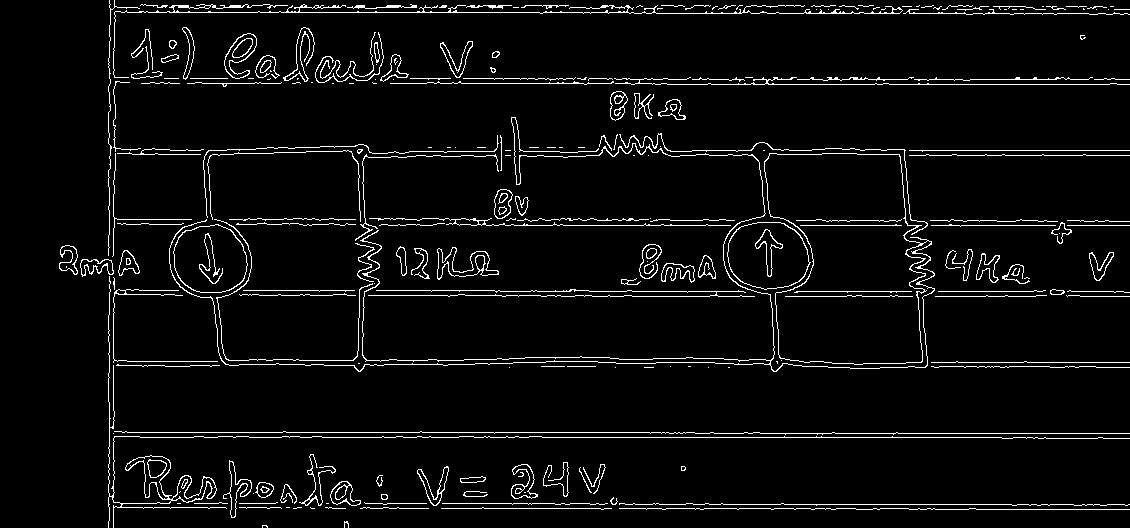 1º) Calcule V:
8KΩ
8v
2mA
12KΩ
-8mA
4KΩ
+
V
-
Resposta: V = 24V.